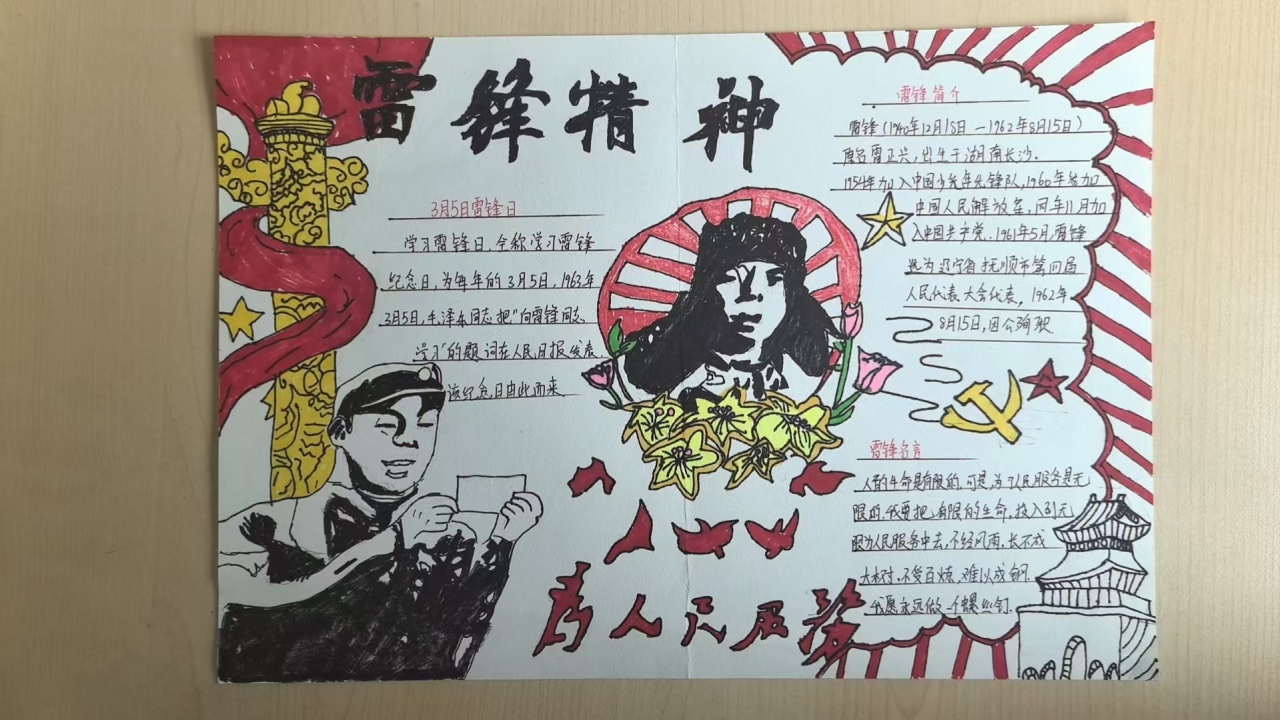 雷锋精神
3月5日雷锋日
学习雷锋日，全称学习雷锋
纪念日，为每年的3月5日，1963年
3月5日，毛泽东同志把"向雷锋同志
学习"的题词在人民日报发表
该纪念日由此而来
雷锋简介
雷锋（1940年12月18日—1962年8月15日）
原名雷正兴，出生于湖南长沙．
1954年加入中国少先年先锋队，1960年参加
中国人民解放军，同年11月加
入中国共产党．1961年5月，雷锋
选为辽宁省抚顺市第四届
人民代表大会代表，1962年
8月15日，因公殉职
雷锋名言
人的生命是有限的，可是，为人民服务是无
限的，我要把，有限的生命，投入到无
限为人民服务中去，不经风雨，长不成
大树，不受百炼，难以成钢．
我愿永远做一个螺丝钉．
为人民服务